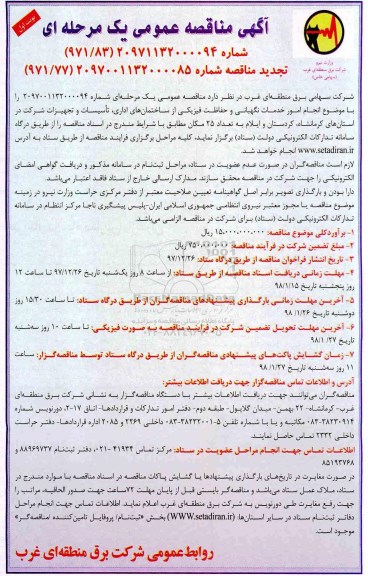 نوبت اول
آگهی مناقصه عمومی یک مرحله ای
شماره ۲۰۹۷۱۱۳۲۰۰۰۰۹۴ (۹۷۱/۸۳)
تجدید مناقصه شماره ۲۰۹۷۰۰۱۱۳۲۰۰۰۰۸۵ (۹۷۱/۷۷)
وزارت نیرو
شرکت برق منطقه‌ای غرب
(سهامی خاص)
شرکت سهامی برق منطقه‌ای غرب در نظر دارد مناقصه عمومی یک مرحله‌ای شماره ۲۰۹۷۰۰۱۱۳۲۰۰۰۰۹۴ را
با موضوع انجام امور خدمات نگهبانی و حفاظت فیزیکی از ساختمان‌های اداری، تأسیسات و تجهیزات شرکت در
استان‌های کرمانشاه، کردستان و ایلام به تعداد ۲۵ مکان مطابق با شرایط مندرج در اسناد مناقصه را از طریق درگاه
سامانه تدارکات الکترونیکی دولت (ستاد) برگزار نماید، کلیه مراحل برگزاری فرایند مناقصه از طریق ستاد به آدرس
www.setadiran.ir انجام خواهد شد.
لازم است مناقصه‌گران در صورت عدم عضویت در ستاد، مراحل ثبت‌نام در سامانه مذکور و دریافت گواهی امضای
الکترونیکی را جهت شرکت در مناقصه محقق سازند. مدارک ارسالی خارج از ستاد فاقد اعتبار می‌باشد.
دارا بودن و بارگذاری تصویر برابر اصل گواهینامه تعیین صلاحیت معتبر از دفتر مرکزی حراست وزارت نیرو در زمینه
موضوع مناقصه یا مجوز معتبر نیروی انتظامی جمهوری اسلامی ایران-پلیس پیشگیری ناجا مرکز انتظام در سامانه
تدارکات الکترونیکی دولت (ستاد) برای شرکت در مناقصه الزامی می‌باشد.
۱- برآوردکلی موضوع مناقصه: ۱۵،۰۰۰،۰۰۰،۰۰۰ ریال
۲- مبلغ تضمین شرکت در فرآیند مناقصه: ۷۵۰،۰۰۰،۰۰۰ ریال
۳- تاریخ انتشار فراخوان مناقصه از طریق درگاه ستاد: ۹۷/۱۲/۲۶
۴- مهلت زمانی دریافت اسناد مناقصه از طریق ستاد: از ساعت ۸ روز یکشنبه تاریخ ۹۷/۱۲/۲۶ تا ساعت ۱۲
روز پنجشنبه تاریخ ۹۸/۱/۱۵
۵- آخرین مهلت زمانی بارگذاری پیشنهادهای مناقصه‌گران از طریق درگاه ستاد: تا ساعت ۱۵/۳۰ روز
دوشنبه تاریخ ۹۸/۱/۲۶
۶- آخرین مهلت تحویل تضمین شرکت در فرایند مناقصه به صورت فیزیکی: تا ساعت ۱۰ روز سه‌شنبه
تاریخ ۹۸/۱/۲۷
۷- زمان گشایش پاکت‌های پیشنهادی مناقصه‌گران از طریق درگاه ستاد توسط مناقصه‌گزار: ساعت
۱۱ روز سه‌شنبه تاریخ ۹۸/۱/۲۷
آدرس و اطلاعات تماس مناقصه‌گزار جهت دریافت اطلاعات بیشتر:
مناقصه‌گران می‌توانند جهت دریافت اطلاعات بیشتر با دستگاه مناقصه‌گزار به نشانی شرکت برق منطقه‌ای
غرب- کرمانشاه- ۲۲ بهمن- میدان گلایول- طبقه دوم- دفتر امور تدارکات و قراردادها- اتاق ۲۰۱۷، دورنویس شماره
۰۸۳-۳۸۲۳۰۹۱۴ مکاتبه و یا با شماره تلفن ۵-۳۸۲۳۲۰۰۱-۰۸۳ داخلی ۲۲۶۹ و ۲۰۸۵ اداره قراردادها- دفتر حراست
داخلی ۲۳۳۲ تماس حاصل نمایند.
اطلاعات تماس جهت انجام مراحل عضویت در ستاد: مرکز تماس ۴۱۹۳۴-۰۲۱، دفتر ثبت‌نام ۸۸۹۶۹۷۳۷ و
۸۵۱۹۳۷۶۸
در صورت مغایرت در تاریخ‌های بارگذاری پیشنهادها یا گشایش پاکات مناقصه در اسناد مناقصه با موارد مندرج در
ستاد، ملاک عمل ستاد می‌باشد و مناقصه‌گر بایستی قبل از پایان مهلت ۷۲ساعت جهت صدور الحاقیه، مراتب را
جهت رفع مغایرت طی دورنویس به شرکت برق منطقه‌ای غرب اعلام نماید. اطلاعات تماس جهت انجام مراحل
دفاتر ثبت‌نام ستاد در سایر استان‌ها: (WWW.setadiran.ir) بخش «ثبت‌نام/ پروفایل تامین‌کننده/مناقصه‌گر»
موجود است.
روابط عمومی شرکت برق منطقه‌ای غرب